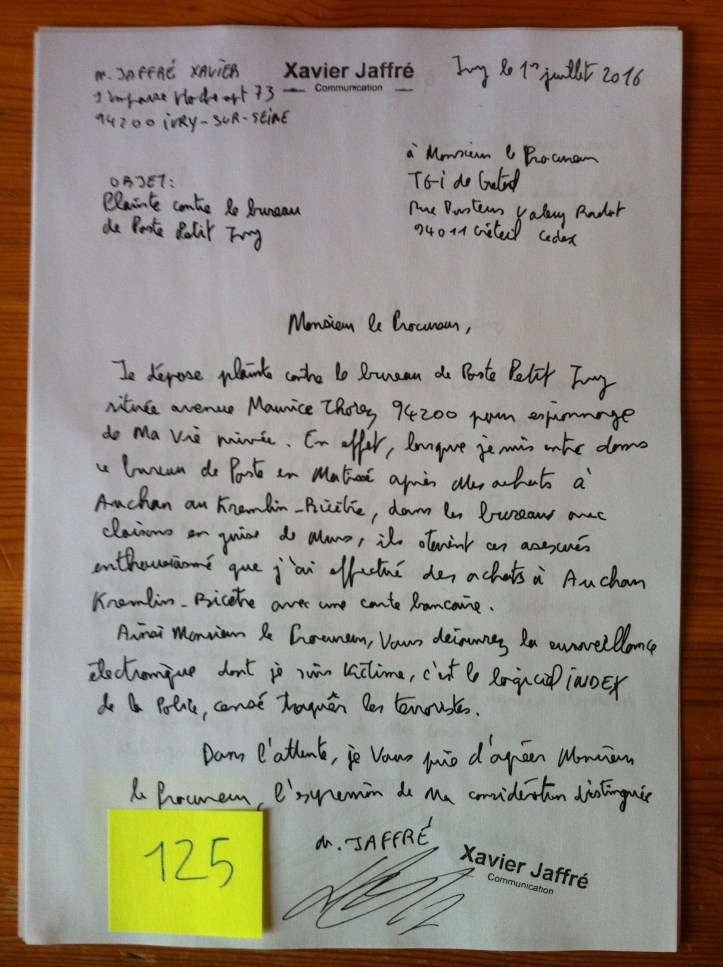 M. JAFFRÉ XAVIER
Xavier Jaffré
Communication
Ivry le 1er juillet 2016
1 impasse Hoche apt 73
94200 IVRY-SUR-SEINE
à Monsieur le Procureur
TGI de Créteil
Rue Pasteur Valery Radot
94011 Créteil Cedex
OBJET:
Plainte contre le bureau
de Poste Petit Ivry
Monsieur le Procureur,
Je dépose plainte contre le bureau de Poste Petit Ivry
située avenue Maurice Thorez 94200 pour espionnage
de Ma Vie privée. En effet, lorsque je suis entré dans
ce bureau de Poste en Matinée après des achats à
Auchan au Kremlin-Bicêtre, dans les bureaux avec
cloisons en guise de Murs, ils étaient
enthousiasmé que j'ai effectué des achats à Auchan
Kremlin-Bicêtre avec une carte bancaire.
Ainsi Monsieur le Procureur, Vous découvrez la surveillance
électronique dont je suis Victime, c'est le logiciel INDEX
de la Police, censé traquer les terroristes.
Dans l'attente, je Vous prie d'agréer Monsieur
le Procureur, l'expression de Ma considération distinguée
M. JAFFRÉ
Xavier Jaffré
Communication
125